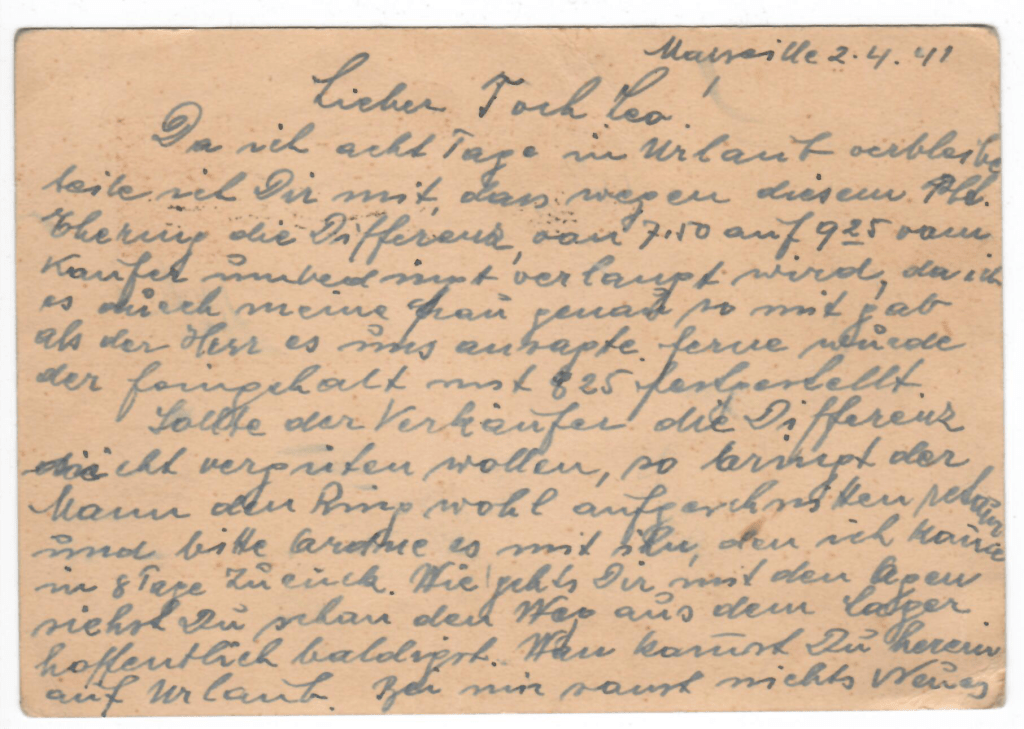 Marseille 2.4.41
Lieber Leo!
Da ich acht Tage in Urlaub verbleibe
teile ich Dir mit, dass wegen diesem Plt.
Ehering die Differenz, von 7.50 auf 9 25 vom
Kaufer unbedingt verlangt wird, da ich
es durch meine Frau genau so mit gab
als der Herr es uns ansagte. ferne wurde
der feingehalt mit 825 festgestellt
Sollte der Verkäufer die Differenz
nicht verguten wollen, so bringt der
Mann den Ring wohl aufgeschnitten retour
und bitte ordne es mit ihn, den ich
in 8 Tage Zurück. Wie geht's Dir, mit den Agen
siehst Du schon den Weg aus dem Lager
hoffentlich baldigst. Wan kannst Du herein
auf Urlaub. Bei mir sonst nichts Neues